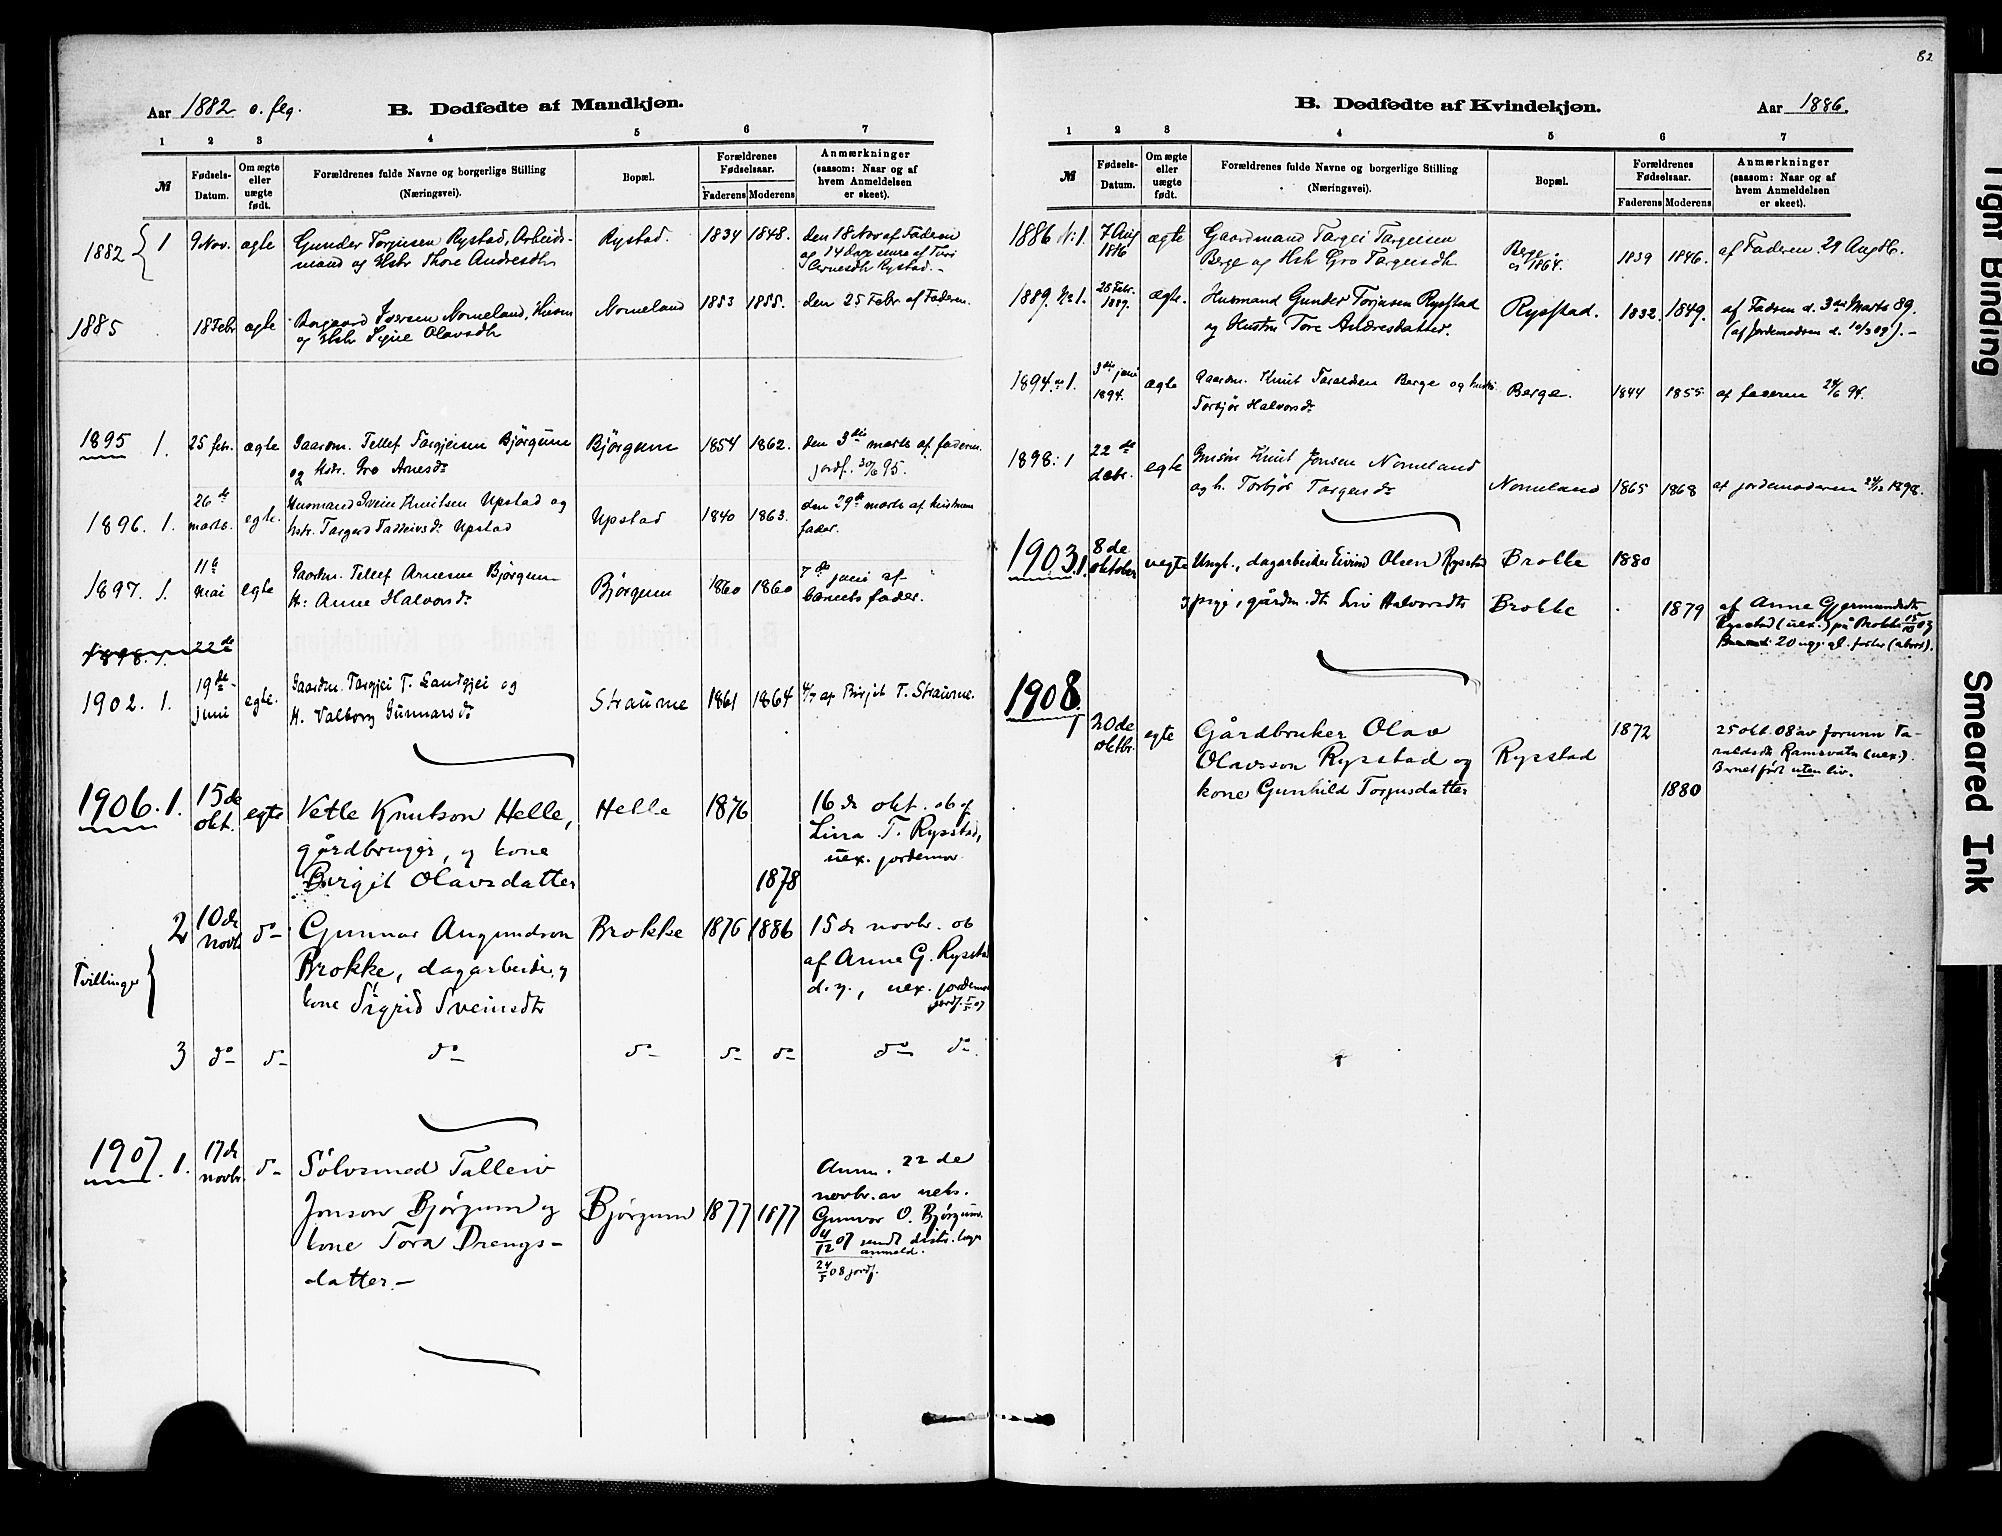 82
Aar 1882 o. flg.
B. Dødfødte af Mandkjøn.
1 2 3 4 5 6 7
№
Fødsels-Datum.
Om ægte eller uægte født.
Forældrenes fulde Navne og borgerlige Stilling (Næringsvei).
Bopæl.
Forældrenes Fødselsaar.
Faderens Moderens
Anmærkninger (saasom: Naar og af hvem Anmeldelsen er skeet).
1882 1 9 Nov. ægte Gunder Torjusen Rystad, Arbeids- Rystad. 1834 1848. den 18 Nov af Faderen
mand og Hstr Thore Andresdtr og 14 dage senere af Turi
Arnesdtr Rystad.-
1885 18 Febr ægte Aasgaard Iversen Nomeland, Husm Nomeland 1853 1855. den 25 Febr af Faderen.
og Hstr Signe Olavsdtr
1895 1. 25 febr. ægte Gaardm. Tellef Targjeisen Bjørgum Bjørgum 1854 1862. den 3die marts af faderen.
og Hstr. Gro Arnesdr jordf. 30/6 95.
1896. 1. 26de marts. egte. Husmand Svein Knutsen Upstad og Upstad 1840 1863. den 29de marts af
hstr. Targerd Tadleivsdr Upstad fader.
1897. 1. 11te mai egte Gaardm. Tellef Arnesen Bjørgum Bjørgum 1860 1860 7de juni af
H: Anne Halvorsdr barnets fader.
1898. 1. 22de
1902. 1. 19de juni egte. Gaardm. Targjei T. Sandgjei og Straume 1861 1864 4/7 af Birgit T. Straume.
H. Valborg Gunnarsdr
1906. 1. 15de okt. egte Vetle Knutson Helle, Helle 1876 16de okt. 06 af
gårdbruger, og kone Lina T. Rysstad,
Birgit Olavsdatter 1878 uex. jordemor
Tvillinger
2 10de novbr do Gunnar Angundson Brokke 1876 1886 15de novbr. 06
Brokke, dagarbeider, og af Anne G. Rysstad
kone Sigrid Sveinsdtr d.y., uex. jordemor
jordf. 5/5 07
3 do do do do do do do do
1907. 1. 17de novbr. do Sølvsmed Talleiv Anm. 22 de
Jonson Bjørgum og Bjørgum 1877 1877 novbr. av
kone Tora Drengs- Gunvor O. Bjørgum.
datter.- 4/12 07 sendt distr. læge
anmeld.
24/5 08 jordf.
B. Dødfødte af Kvindekjøn.
Aar 1886.
1 2 3 4 5 6 7
№
Fødsels-Datum.
Om ægte eller uægte født.
Forældrenes fulde Navne og borgerlige Stilling (Næringsvei).
Bopæl.
Forældrenes Fødselsaar.
Faderens Moderens
Anmærkninger (saasom: Naar og af hvem Anmeldelsen er skeet).
1886 № 1. 7 Aug 1886 ægte Gaardmand Targei Targeisen Berge 1839 1846. af Faderen 29 Aug 86.
Berge og Hstr Gro Targeisdtr
1889. No 1. 25 Febr. 1889. ægte. Husmand Gunder Torjusen Rysstad Rysstad. 1832. 1849. af Faderen d. 3die Marts 89.
og Hustru Tore Andresdatter. (af Jordemoderen d. 10/3 89).-
1894. no 1. 3die juni 1894. ægte Gaardm. Knut Taraldsen Berge og hustru Berge. 1844 1855 af faderen 24/6 94.
Torbjør Halvorsdr
1898. 1 22de debr. egte Knut Jonsen Nomeland Nomeland 1865 1868 af jordemoderen 24/12 1898.
og h. Torbjør Targeisdr
1903. 1. 8de oktober uegte Ungk., dagarbeider Eivind Olsen Rysstad Brokke 1880
og pige, gårdm.dtr Liv Halvorsdtr Brokke 1879 af Anne Gjermundsdtr
Rysstad (uex.) på Brokke 15/10 03
20 foster (abort).
1908. 1 20de oktbr. egte Gårdbruker Olav 1872 25 okt. 08 av Ta-
Olavsson Rysstad og Rysstad raldsdtr Ramsvatn (uex.).
kone Gunhild Torjusdatter 1880 Barnet født uten liv.
Tight Binding
Smeared Ink